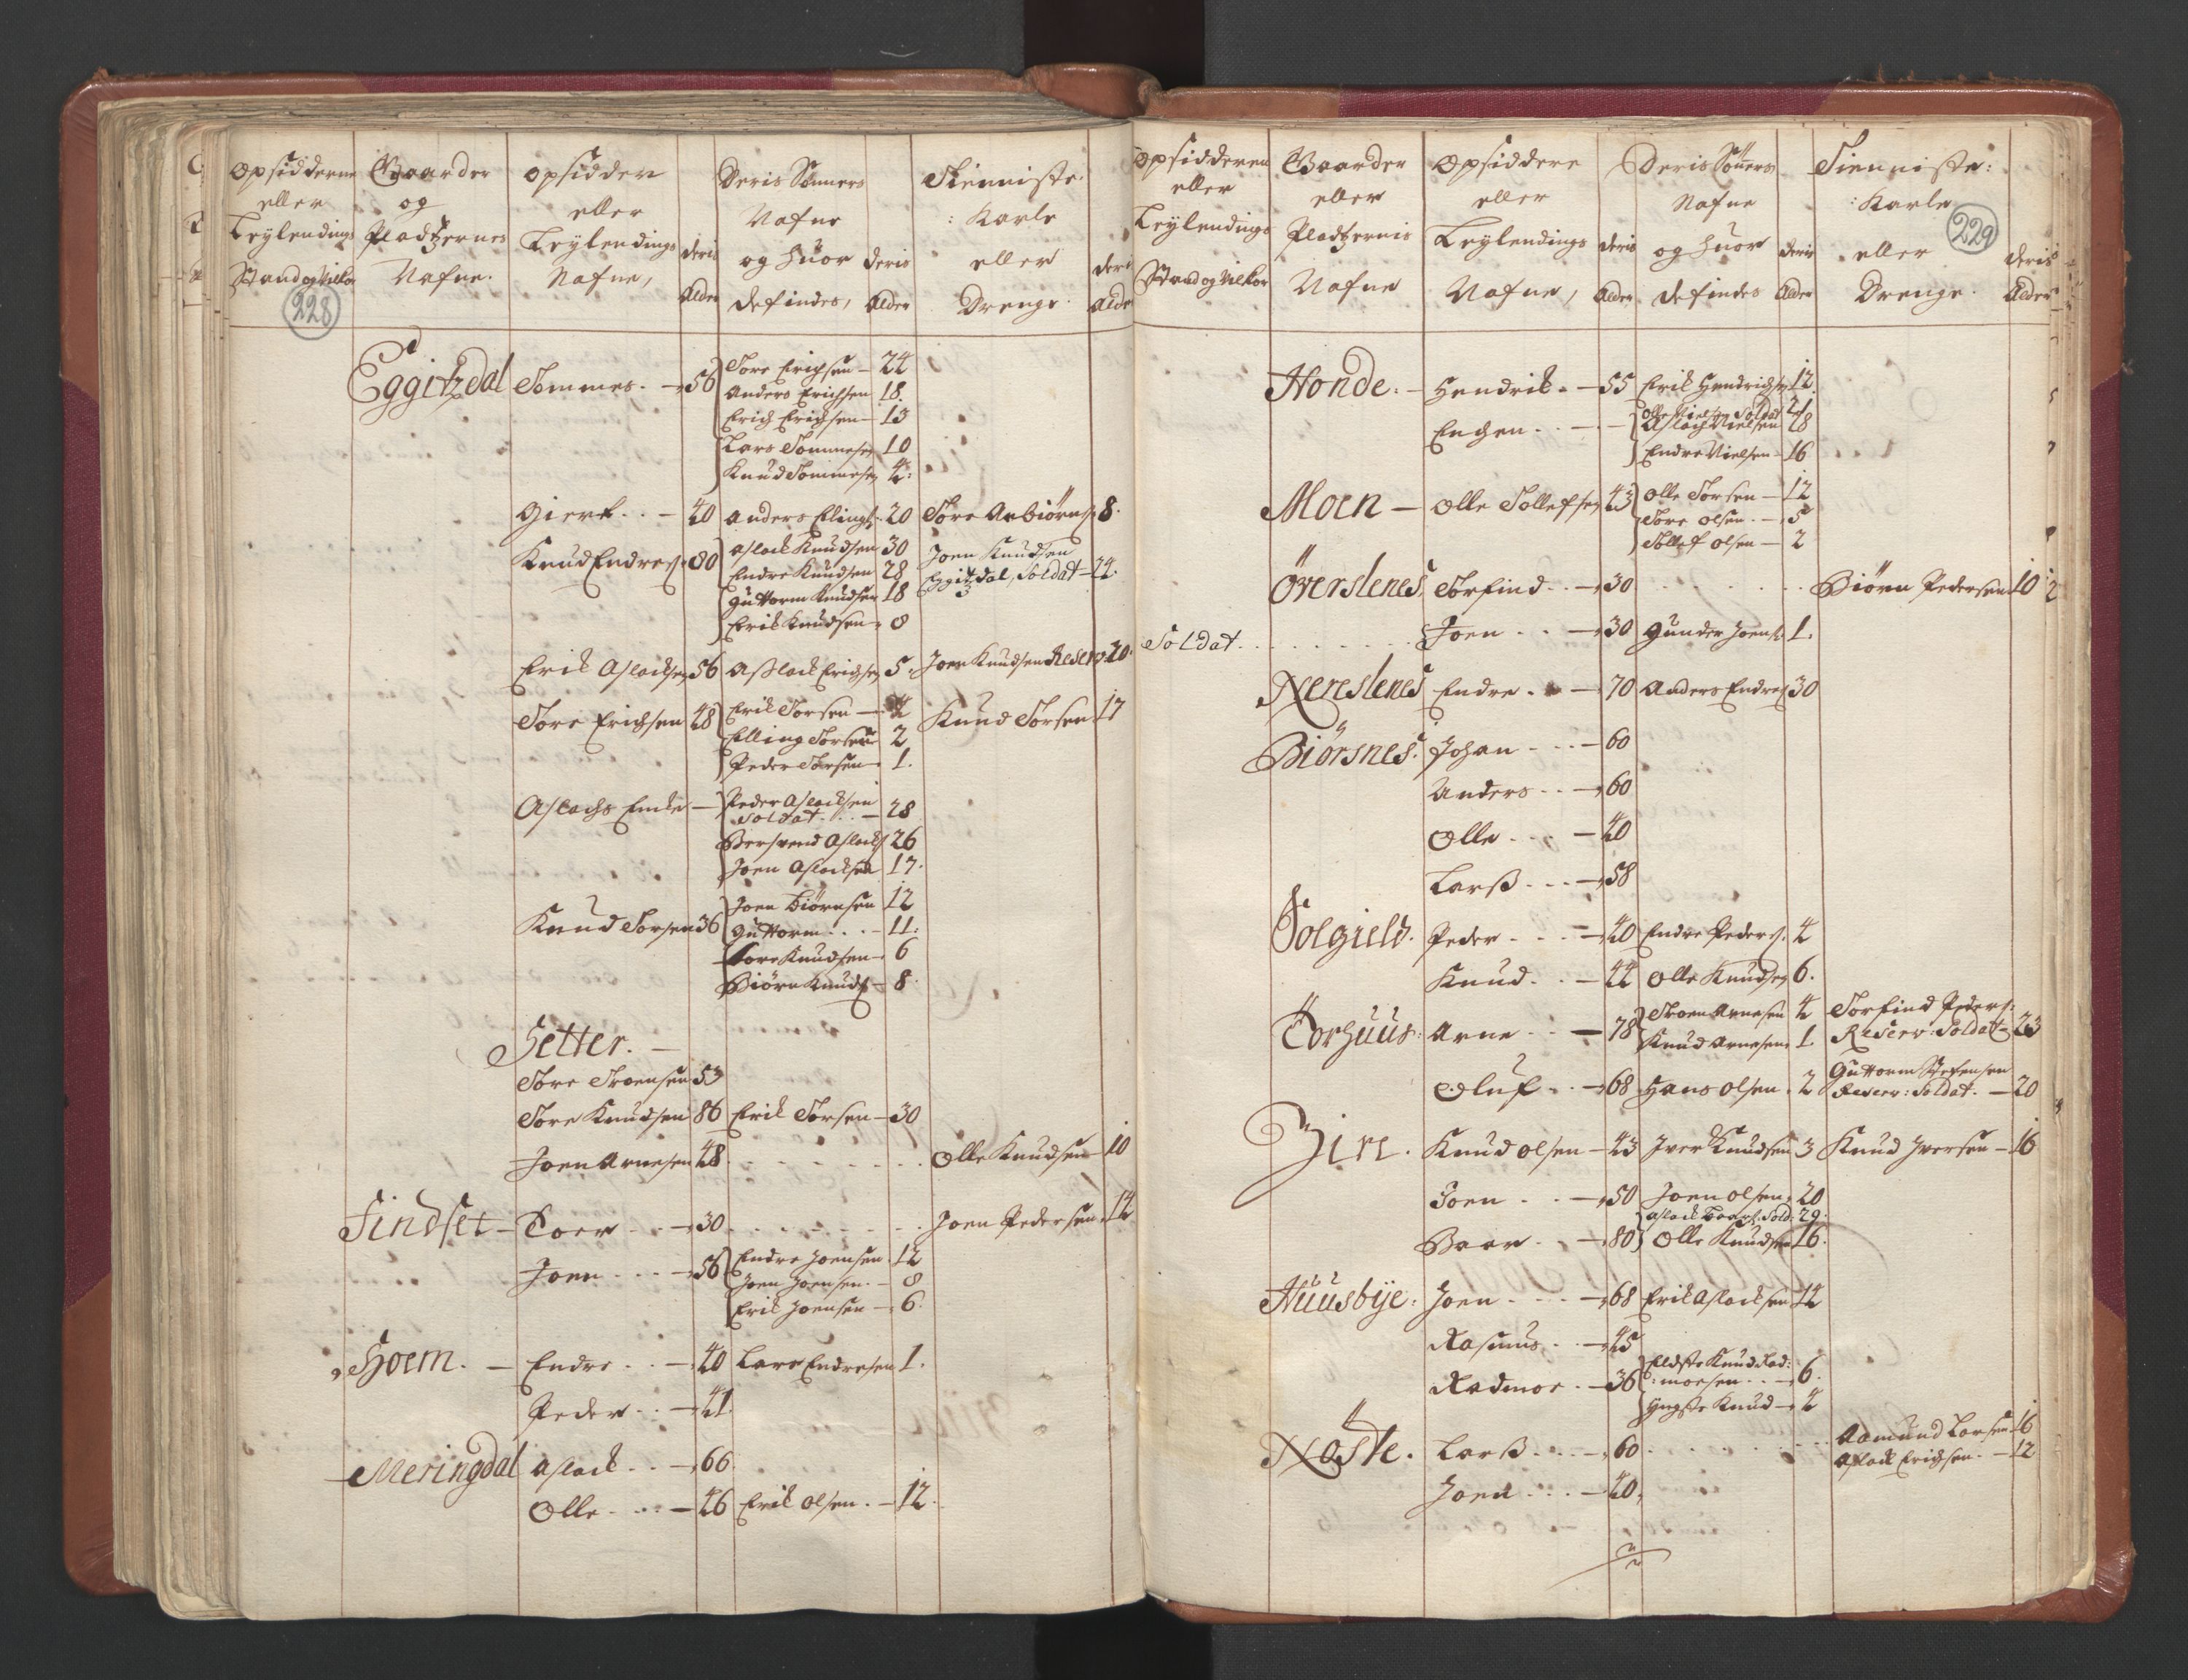 Opsidderne eller Leylendings Stand og Vilkor
Gaarder og Pladtzernes Nafne.
Opsidder eller Leylendings Nafne,
deris Alder
Deris Sønners Nafne og huor de findes,
deris Alder
Tienniste: Karle eller Drenge.
deris Alder
228
Eggitzdal Tommes. — 56 Tore Erichsen — 24
Anders Erichsen 18.
Erich Erichsen — 13
Lars Tommesen 10
Knud Tommesen 4.
Giert . . — 40 Anders Ellings. 20 Tore Arbiørns. 8.
Knud Endres. 80 Aslack Knudsen 30 Joen Knudsen
Endre Knudsen 28 Eggitzdal, Soldat — 24.
Guttorm Knudsen 18
Erik Knudsen 8
Erik Aslacksen 56 Asslack Erichsen 5. Joen Knudsen Reserv. 20.
Tore Erichsen 48 Erik Torsen — 4 Knud Torsen 17
Elling Torsen 2
Peder Torsen 1.
Aslachs Encke — Peder Aslacksen
Soldat . . . — 28
Bersvend Aslacks. 26
Joen Aslacksen 17.
Knud Torsen 36 Joen Biørnsen 12
Guttorm . . . — 11.
Tore Knudsen 6
Biørn Knuds. — 8.
Setter. —
Tore Troensen 53
Tore Knudsen 86 Erik Torsen — 30
Joen Arnesen 48 . . . . . . Olle Knudsen 10
Findset — Toer . . — 30 . . . . . . Joen Pedersen 14
Joen . . . — 56 Endre Joensen. 12
Joen Joensen. — 8
Erik Joensen — 6.
Hoem. — Endre . . — 40 Lars Endresen 1.
Peder . . — 41.
Meringdal Aslack . . — 66
Olle . . . — 46 Erik Olsen . — 12.
Opsidderen eller Leylendings Stand og Vilkor
Gaarder eller Pladtzernis Nafne
Opsiddere eller Leylendings Nafne,
deris Alder
Deris Sønners Nafne og huor de findes
deris Alder
Tienniste: Karle eller Drenge.
deris Alder
229
Honde. — Hendrik. — 55 Erik Hendrichsen 12.
Enchen . . — Olle Nielsen Soldat 21
Aslach Nielsen 18
Endre Nielsen — 16
Moen — Olle Tollefsen 43 Olle Torsen — 12
Tore Olsen . — 5
Tollef Olsen — 2
Øverslenes Torfind . . — 30 . . . . . Biørn Pedersen 10
Soldat . . . . . . . . Joen . . — 30 Gunder Joens. 1.
Nereslenes Endre . — 70 Anders Endres. 30
Biørsnes. Johan . . . — 60
Anders . . — 60
Olle . . . — 40
Larss . . . — 58
Solgield. Peder . . . — 40 Endre Peders. 4
Knud . . — 44 Olle Knudsen 6.
Torhuus: Arne . . — 78 Troen Arnesen 4 Torfind Peders:
Knud Arnesen 1. Reserv: Soldat — 23
Oluf . . — 68 Hans Olsen . 2 Guttorm Stefensen
Reserv: Soldat. — 20
Jire. Knud Olsen — 43 Iver Knudsen 3 Knud Iversen — 16
Joen . . — 50 Joen Olsen 20
Aslack Baars. Sold. 29.
Baar . . — 80 Olle Knudsen 16.
Huusbye: Joen . . . — 68 Erik Aslacksen 14
Rasmus . . — 45
Radmoe . — 36 Eldste Knud Rad:
:moesen . . — 6.
Yngste Knud — 4
Nøste. Larss . . . — 60 . . . . . Aamund Larsen 16
Aslack Erichsen. — 12
Joen . . . — 40.